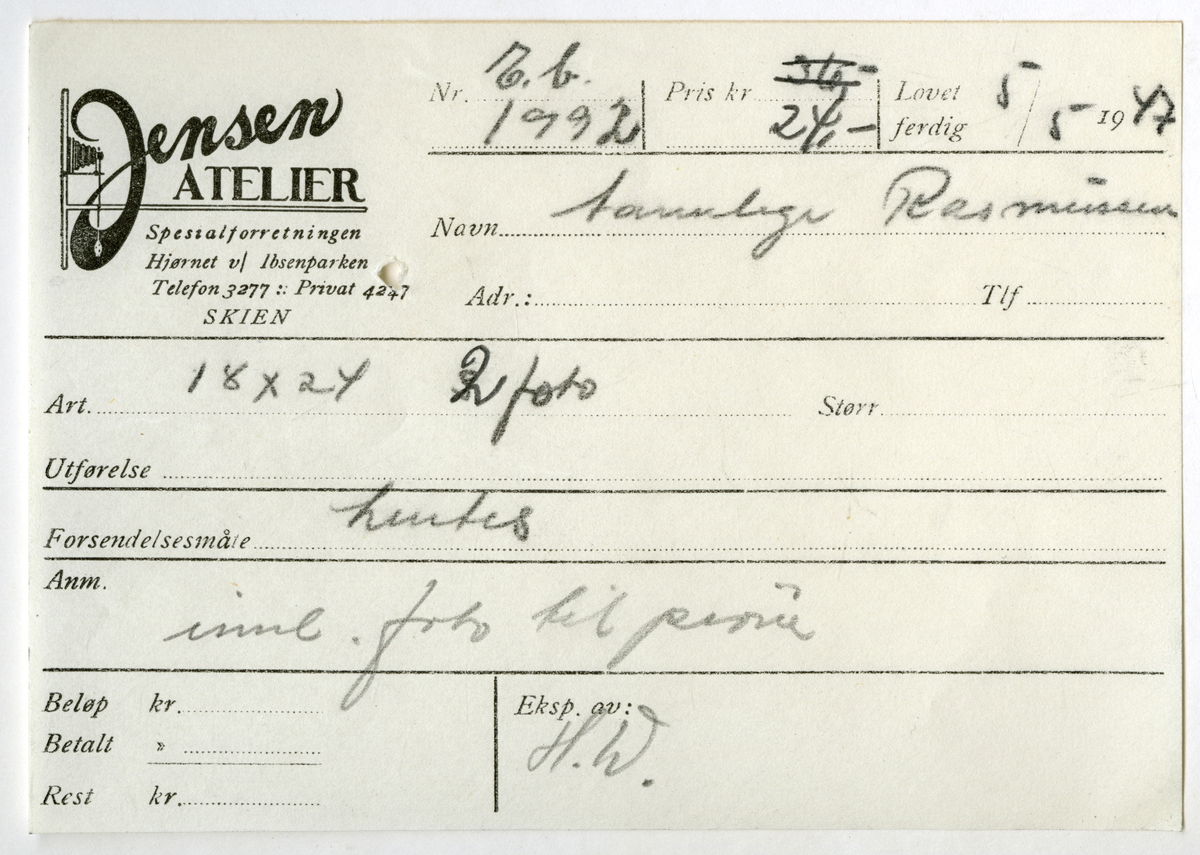 Jensen
ATELIER
Spesialforretningen
Hjørnet v/ Ibsenparken
Telefon 3277 :: Privat 4247
SKIEN
Nr. E.b. 1992
Pris kr 36,- 24,-
Lovet ferdig 5/5 1947
Navn tannlege Rasmussen
Adr.: Tlf
Art. 18 x 24 2 foto Størr
Utførelse
Forsendelsesmåte hentes
Anm.
innl. foto til prøve
Beløp kr.
Betalt »
Rest kr.
Eksp. av:
H.W.